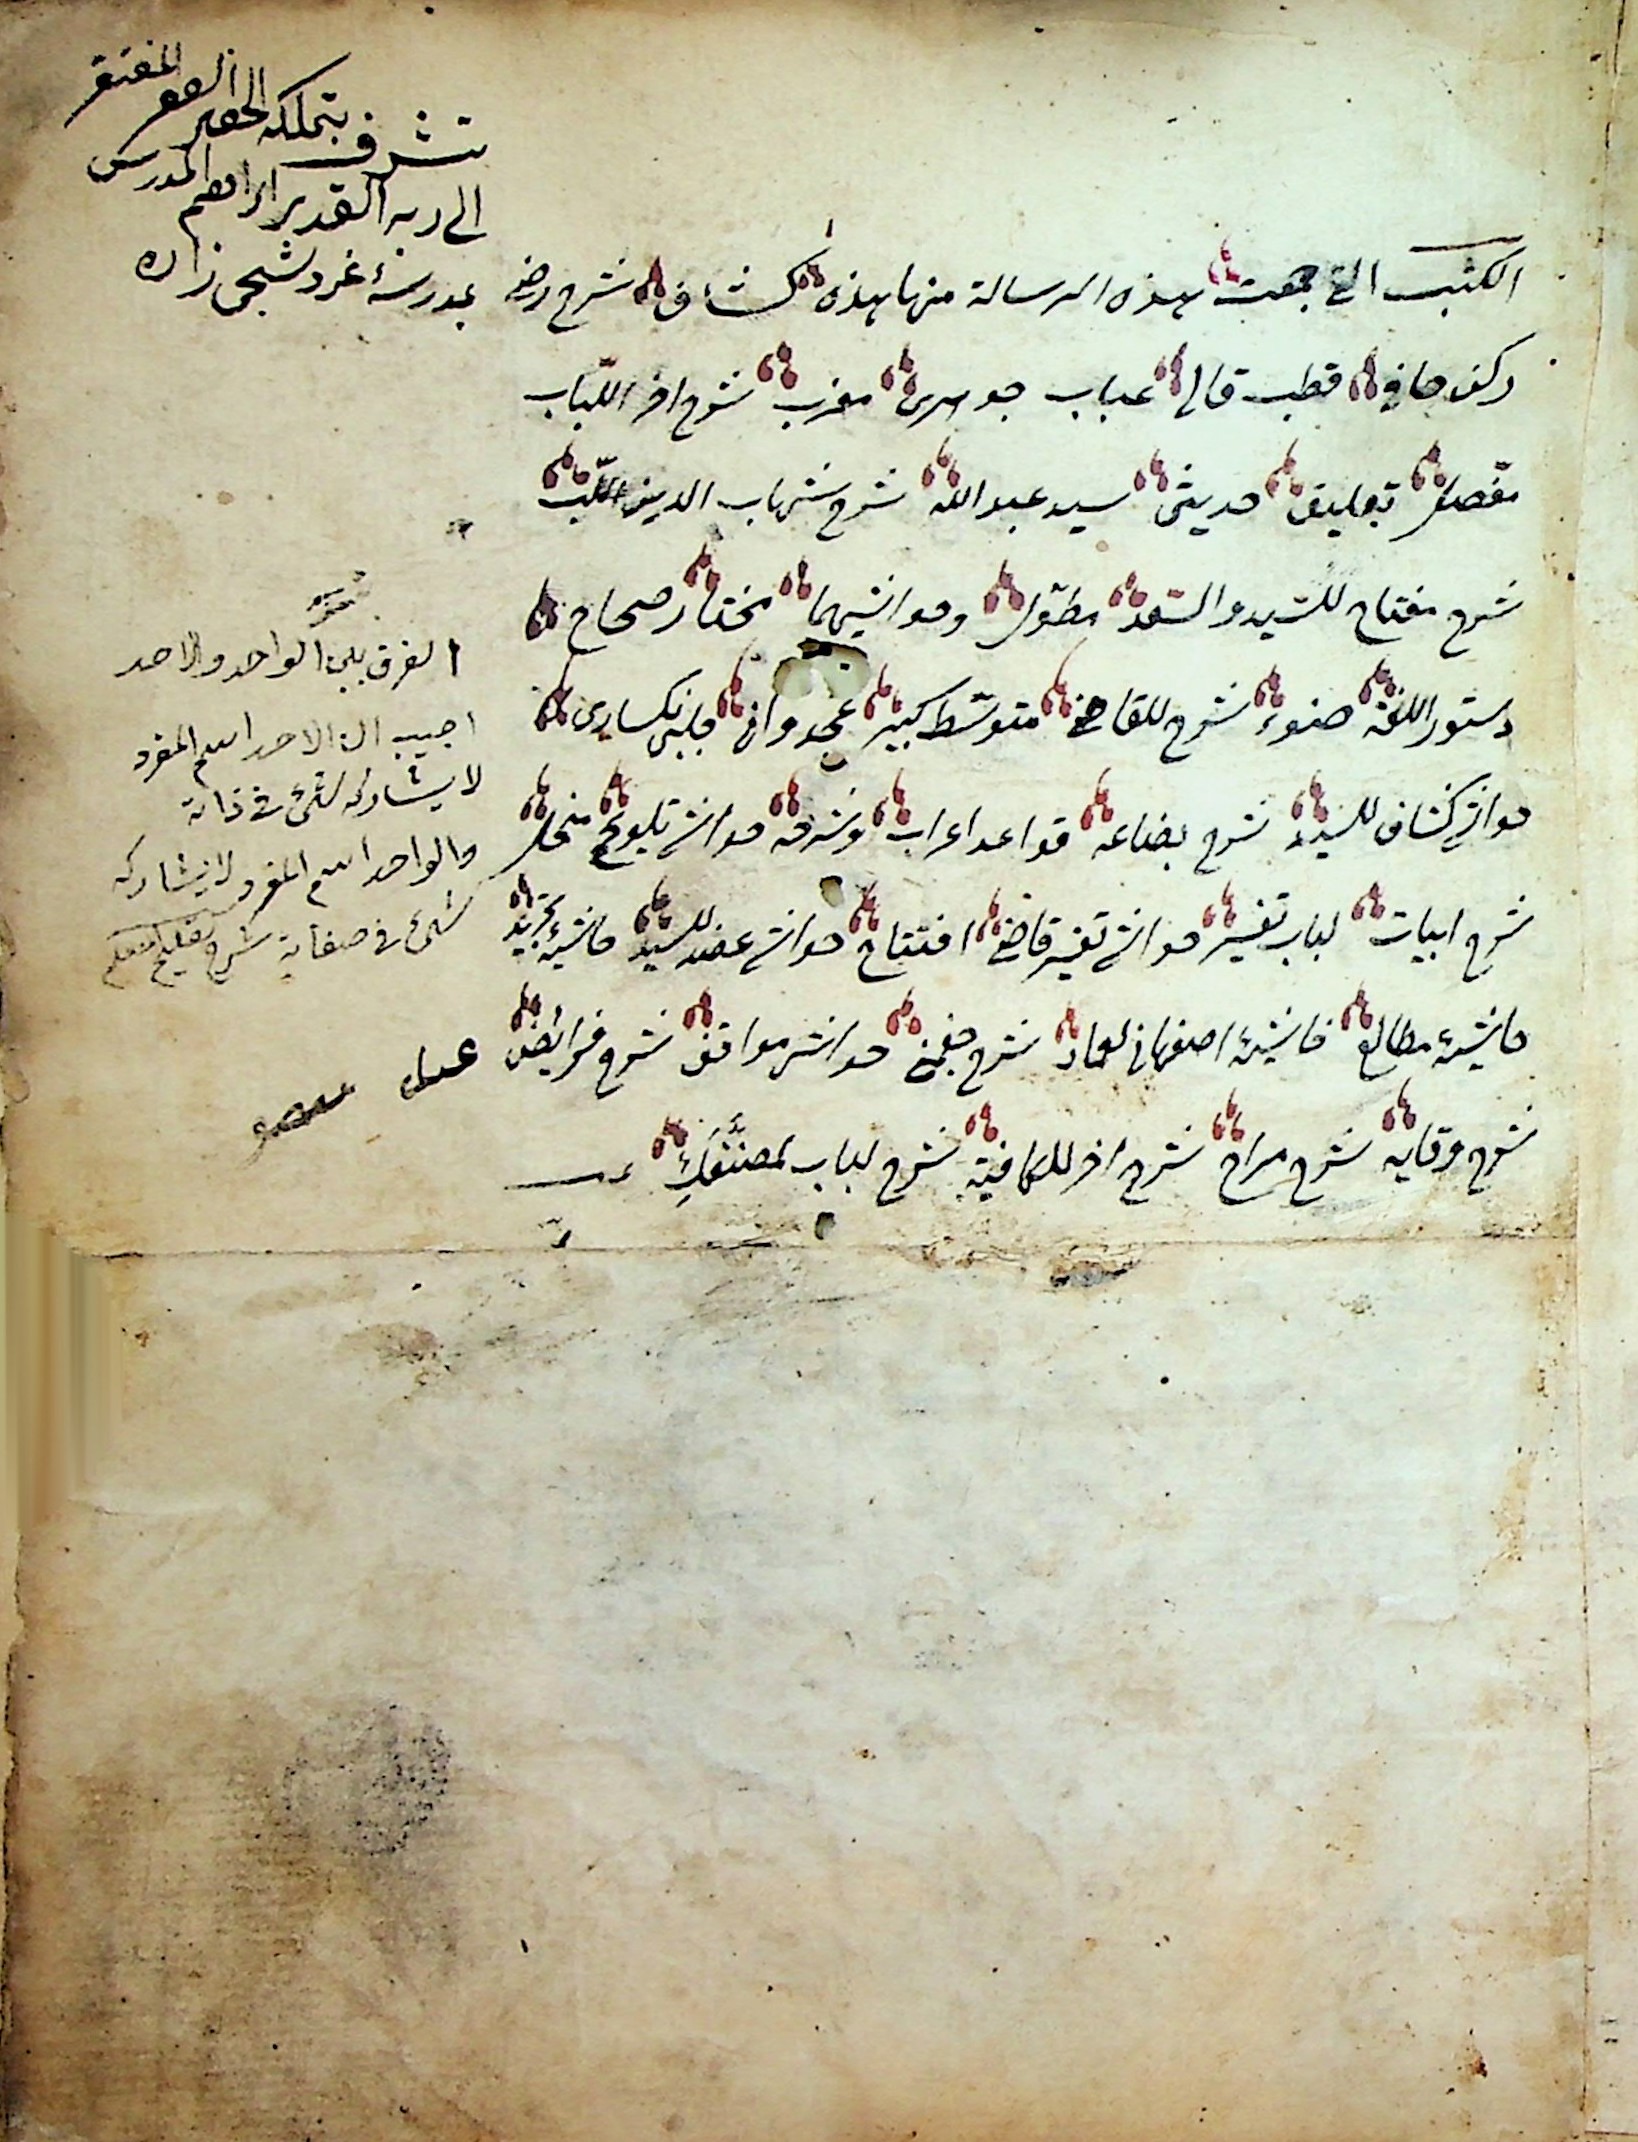 تشرف بتملكه الحقير الفقير المفتقر
الى ربه القدير ابراهيم المدرس
بمدرسۀ زاده
الكتب التي جمعت هذه الرسالة منها هذه كشاف شرح رضي
ركن حافي قطب قالي عباب جوهري مغرب شرح اخر اللباب
مفصل تعليق حديثي سيد عبد الله شرح شهاب الدين اللب
شرح مفتاح للسيد والسعد مطول وحواشيهما مختار صحاح
دستور اللغة ضوء شرح للقاضي متوسط كبير عجدواني جلبي نكساري
حواشي كشاف للسيد شرح بضاعه قواعد اعراب وشرحه حواشي تلويح منهل
شرح ابيات لباب تفسير حواشي تفسير قاضي افتتاح حواشي عضد للسيد حاشيۀ تجريد
حاشيۀ مطالع حاشيۀ اصفهاني لعماد شرح جغمني حواشي مواقف شرح فرائض
شرح وقايه شرح مراح شرح اخر للكافية شرح لباب لمصنفك
الفرق بين الواحد والاحد
اجيب ان الاحد اسم المفرد
لا يشاركه شئ في ذاته
والواحد اسم المفرد لا يشاركه
شئ في صفاته شرح تعليم متعلم